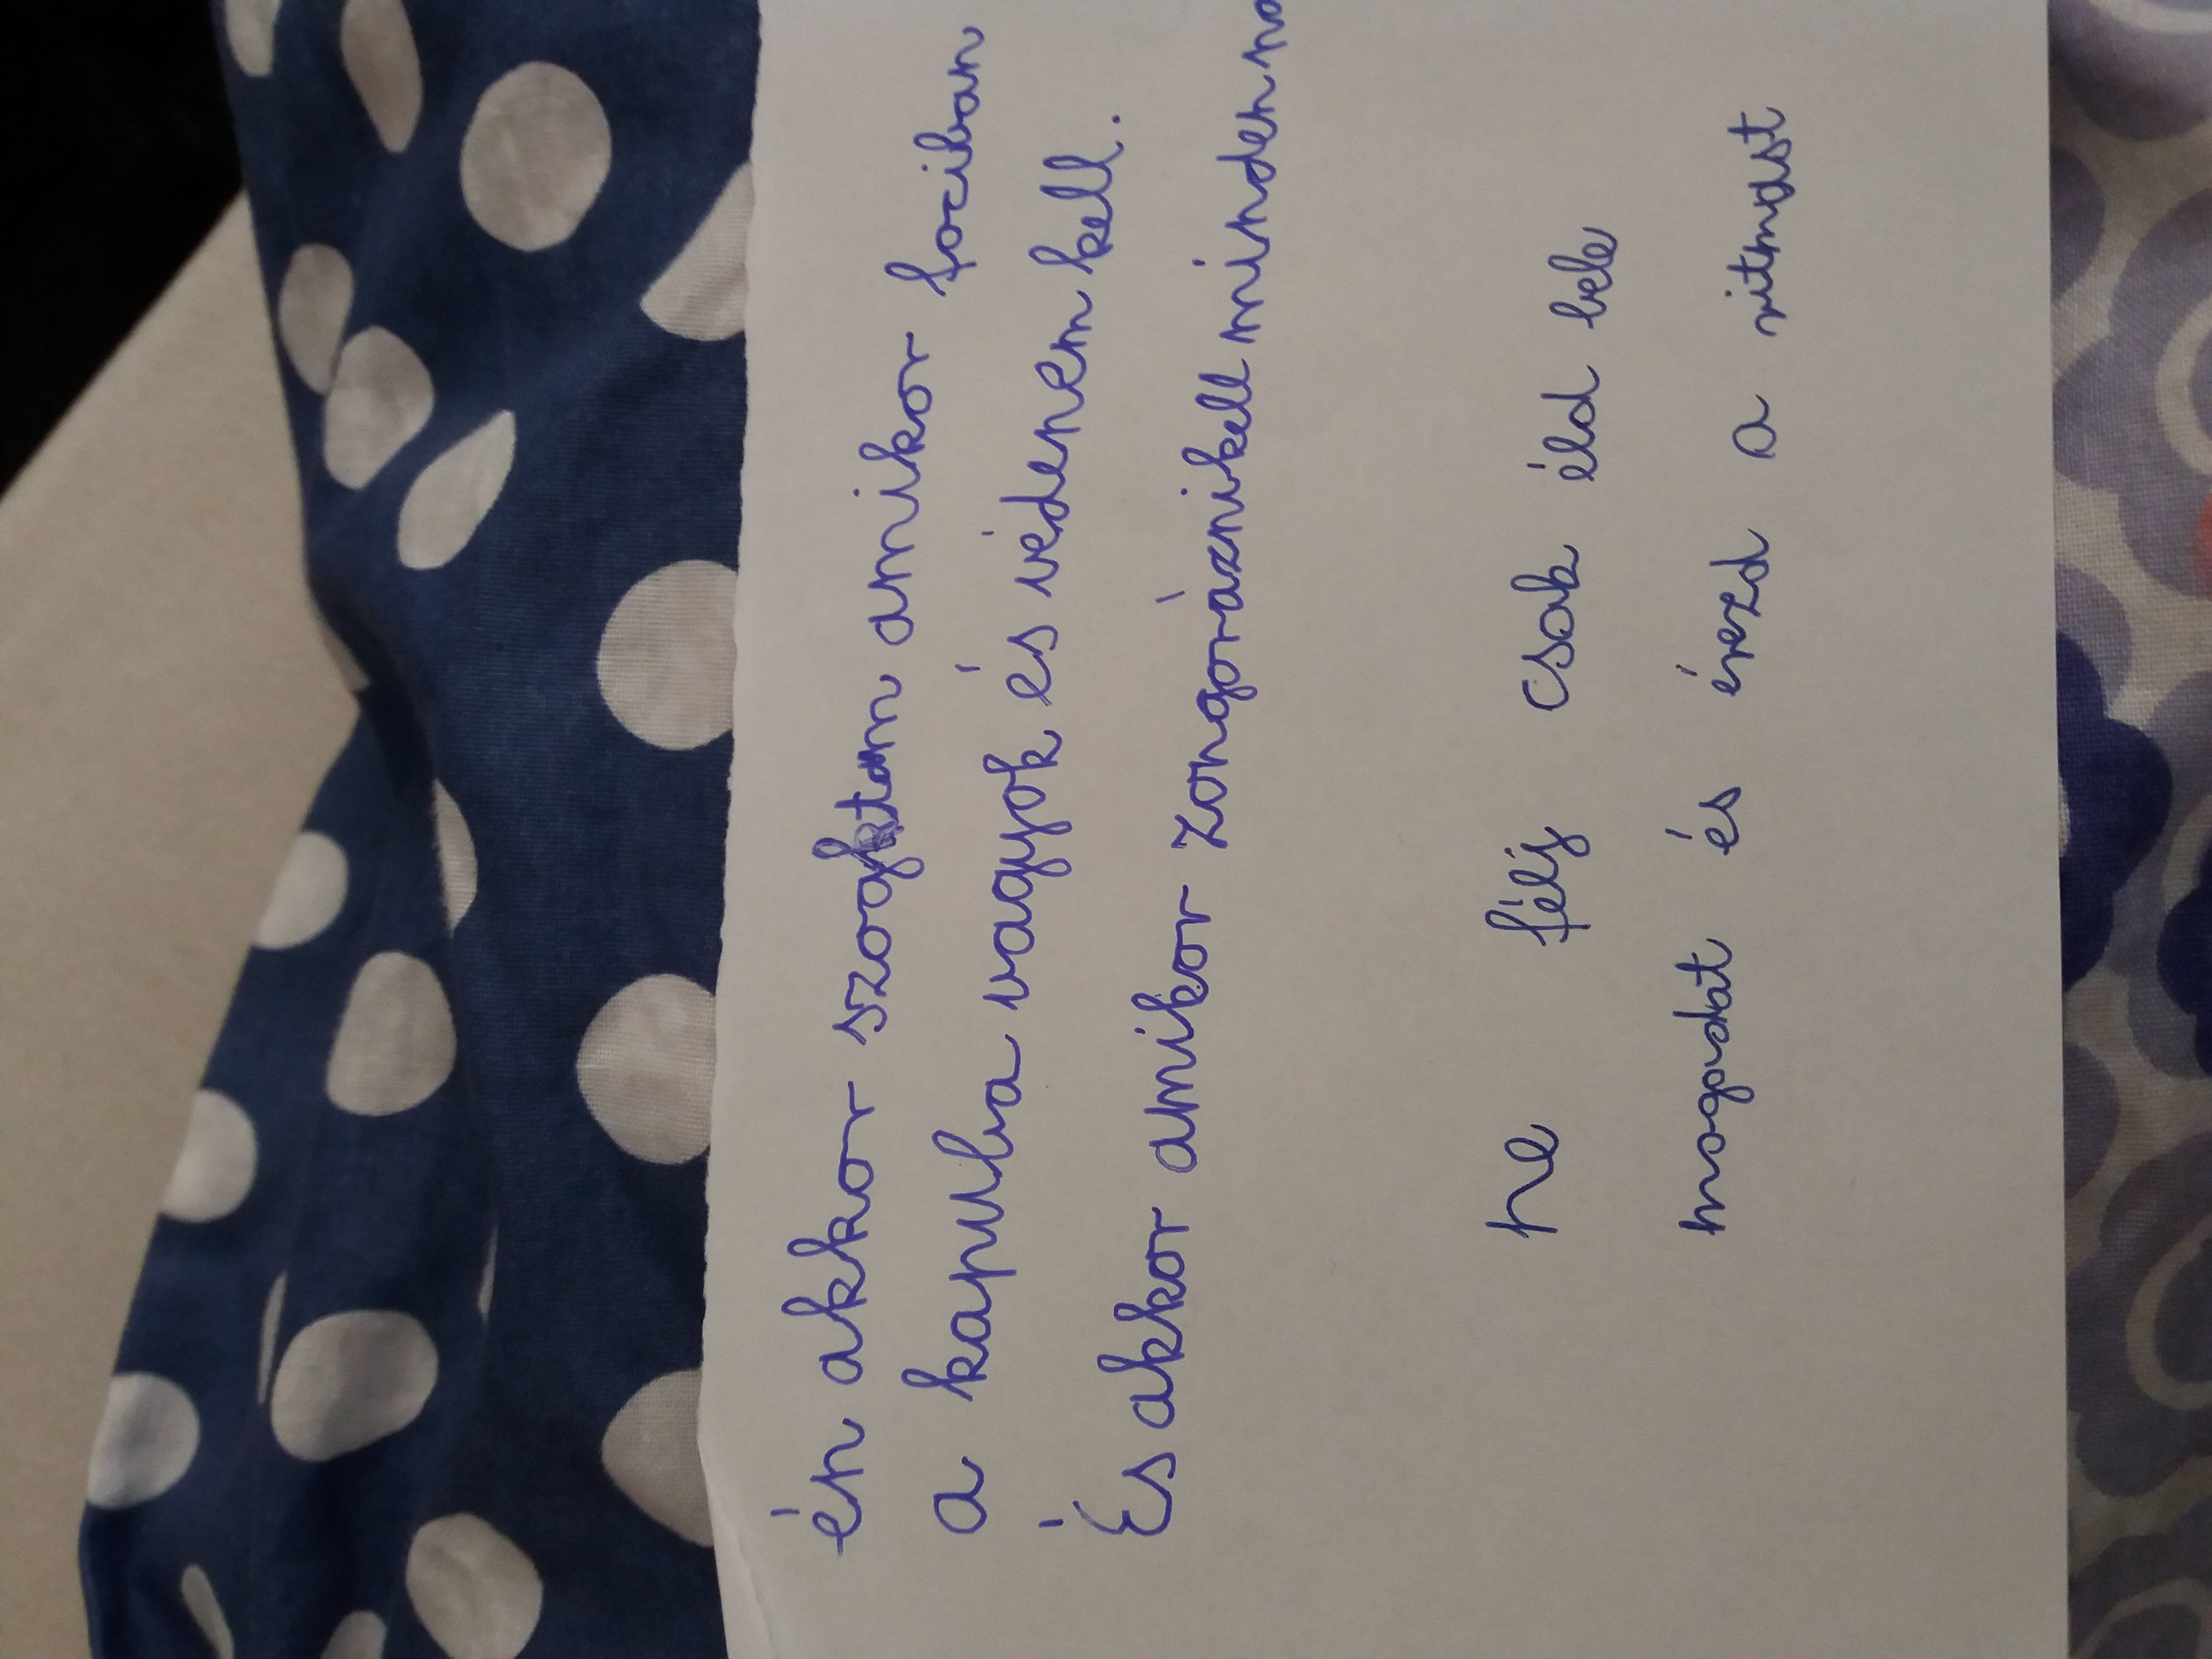 én akkor szogktam amikor fociban
a kapuba vagyok és védenem kell.
És akkor amikor zongoráznikell minden
ne félj csak éld bele
magadat és érezd a ritmust